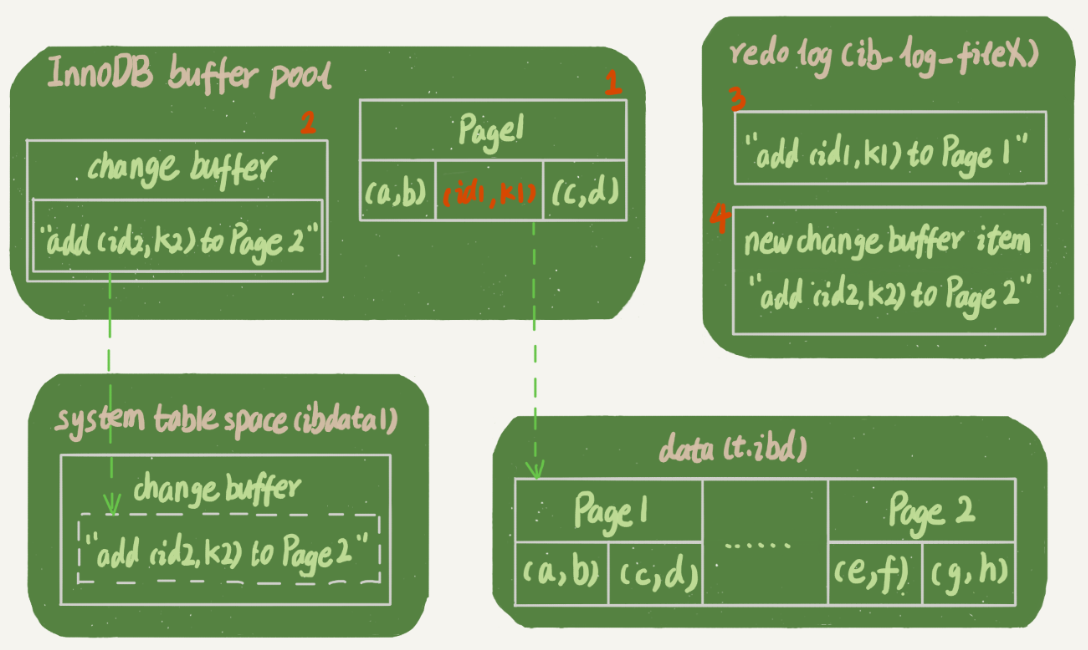 InnoDB buffer pool
1
Page1
(a,b) (id1,k1) (c,d)
2
change buffer
"add (id2,k2) to Page 2"
redo log (ib-log-fileX)
3
"add (id1,k1) to Page 1"
4
new change buffer item
"add (id2,k2) to Page 2"
system table space (ibdata1)
change buffer
"add (id2,k2) to Page 2"
data (t.ibd)
Page 1 ...... Page 2
(a,b) (c,d) (e,f) (g,h)